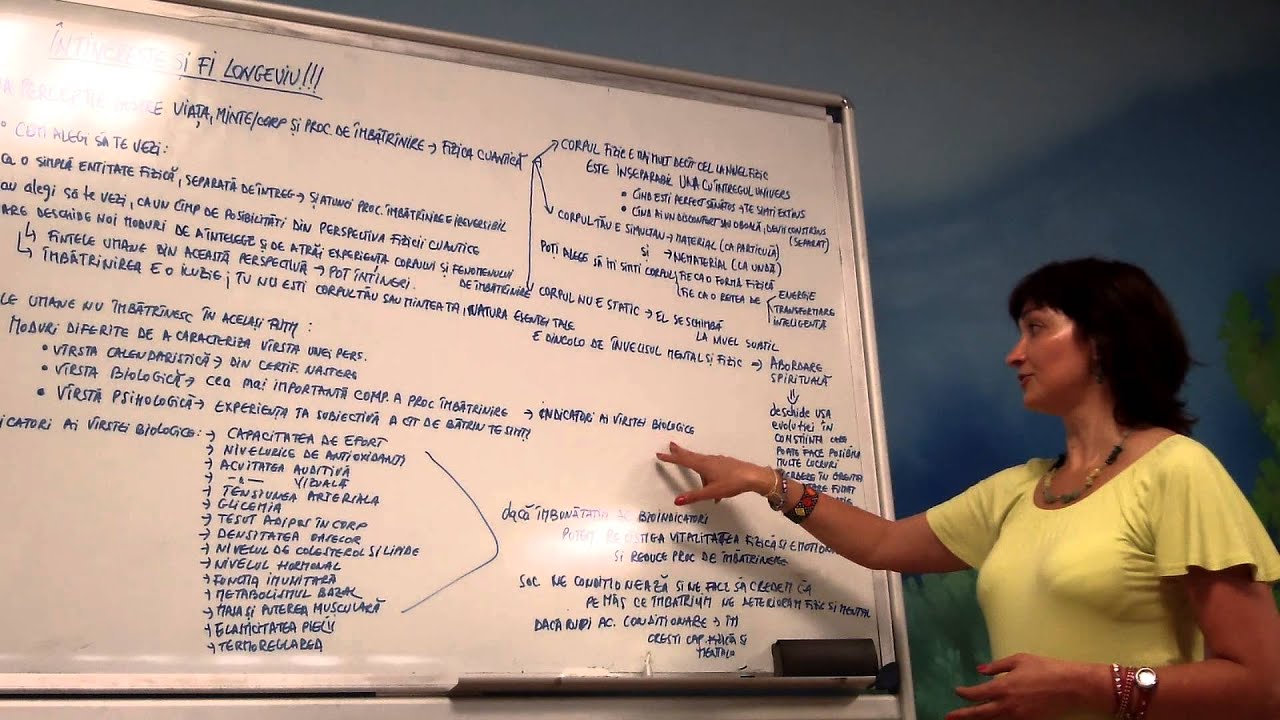 ÎNTINEREȘTE ȘI FI LONGEVIV!!!
PERCEPȚIE DESPRE VIAȚA, MINTE/CORP ȘI PROC. DE ÎMBĂTRÎNIRE → FIZICA CUANTICĂ
• CEM ALEGI SĂ TE VEZI:
CA O SIMPLĂ ENTITATE FIZICĂ, SEPARATĂ DE ÎNTREG → ȘI ATUNCI PROC. ÎMBĂTRÎNIRE IREVERSIBIL
alegi să te vezi, CA UN CÎMP DE POSIBILITĂȚI DIN PERSPECTIVA FIZICII CUANTICE
DESCHIDE NOI MODURI DE A ÎNȚELEGE ȘI DE A TRĂI EXPERIENȚA CORPULUI ȘI FENOMENULUI DE ÎMBĂTRÎNIRE
↳ FIINȚELE UMANE DIN ACEASTĂ PERSPECTIVĂ → POT ÎNTINERI.
↳ ÎMBĂTRÎNIREA E O ILUZIE; TU NU ESTI CORPUL TĂU SAU MINTEA TA, NATURA ESENȚEI TALE
E DINCOLO DE ÎNVELISUL MENTAL ȘI FIZIC → ABORDARE SPIRITUALĂ
→ CORPUL FIZIC E MAI MULT DECÎT CEL LA NIVEL FIZIC
ESTE INSEPARABIL UNA CU ÎNTREGUL UNIVERS
• CÎND ESTI PERFECT SĂNĂTOS → TE SIMTI EXTINS
• CÎND AI UN DISCONFORT SAU O BOALĂ, DEVII CONSTRÎNS (SEPARAT)
CORPUL TĂU E SIMULTAN → MATERIAL (CA PARTICULĂ)
ȘI → NEMATERIAL (CA UNDĂ)
POȚI ALEGE SĂ ÎȚI SIMTI CORPUL FIE CA O FORMĂ FIZICĂ
FIE CA O REȚEA DE ENERGIE
TRANSFORMARE
INTELIGENȚĂ
CORPUL NU E STATIC → EL SE SCHIMBĂ
LA NIVEL SUBTIL
⇓
deschide USA
evoluției ÎN
CONSTIINȚA care
POATE FACE POSIBILA
MULTE LUCRURI
LE UMANE NU ÎMBĂTRÎNESC ÎN ACELAȘI TIMP:
MODURI DIFERITE DE A CARACTERIZA VÎRSTA UNEI PERS.
• VÎRSTA CALENDARISTICĂ → DIN CERTIF. NASTERE
• VÎRSTA BIOLOGICĂ → CEA MAI IMPORTANTĂ COMP. A PROC ÎMBĂTRÎNIRE → INDICATORI AI VÎRSTEI BIOLOGICE
• VÎRSTĂ PSIHOLOGICĂ → EXPERIENȚA TA SUBIECTIVĂ A CÎT DE BĂTRÎN TE SIMȚI
INDICATORI AI VÎRSTEI BIOLOGICE: → CAPACITATEA DE EFORT
→ NIVELURILE DE ANTIOXIDANȚI
→ ACUITATEA AUDITIVĂ
→ —„— VIZUALĂ
→ TENSIUNEA ARTERIALA
→ GLICEMIA
→ TESUT ADIPOS ÎN CORP
→ DENSITATEA OASELOR
→ NIVELUL DE COLESTEROL SI LIPIDE
→ NIVELUL HORMONAL
→ FUNCȚIA IMUNITARĂ
→ METABOLISMUL BAZAL
→ MASA ȘI PUTEREA MUSCULARĂ
→ ELASTICITATEA PIELII
→ TERMOREGLAREA
dacă ÎMBUNĂTĂȚIM AC. BIOINDICATORI
PUTEM RECISTIGA VITALITATEA FIZICĂ SI EMOTIONALĂ
SI REDUCE PROC. DE ÎMBĂTRÎNIRE
SOC. NE CONDITIONEAZĂ SI NE FACE SĂ CREDEM CĂ
PE MĂS CE ÎMBĂTRÎNIM NE DETERIORĂM FIZIC SI MENTAL
DACĂ RUPI AC. CONDITIONARE → ÎȚI
CRESTI CAP. FIZICĂ SI
MENTALĂ